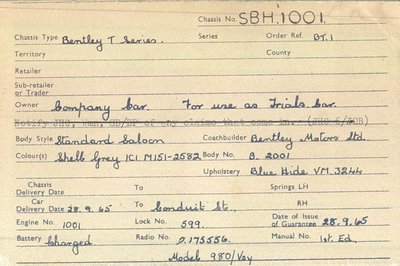 Chassis No. SBH.1001.
Chassis Type Bentley T Series. Series Order Ref. BT.1
Territory County
Retailer
Sub-retailer
or Trader
Owner Company Car. For use as Trials Car.
Notify JHS, of any claims that come in.
Body Style Standard Saloon Coachbuilder Bentley Motors Ltd
Colour(s) Shell Grey ICI M151-2582 Body No. B. 2001
Upholstery Blue Hide VM.3244
Chassis
Delivery Date To Springs LH
Car
Delivery Date 28.9.65 To Conduit St. RH
Engine No. 1001 Lock No. 599. Date of Issue
of Guarantee 28.9.65
Battery Charged Radio No. 0.175556. Manual No. 1st. Ed.
Model 980/Vay